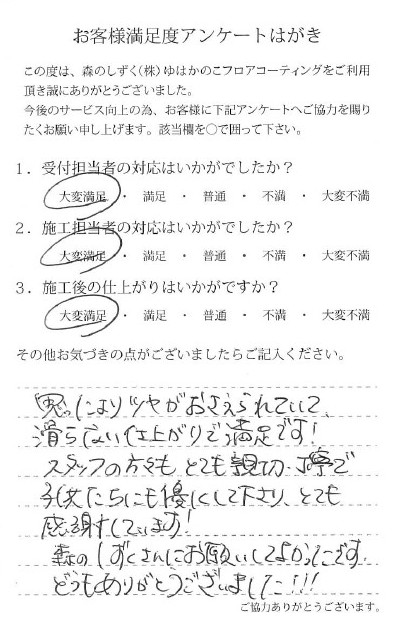 お客様満足度アンケートはがき
この度は、森のしずく(株)ゆはかのこフロアコーティングをご利用
頂き誠にありがとうございました。
今後のサービス向上の為、お客様に下記アンケートへご協力を賜り
たくお願い申し上げます。該当欄を○で囲って下さい。
1．受付担当者の対応はいかがでしたか？
大変満足 ・ 満足 ・ 普通 ・ 不満 ・ 大変不満
2．施工担当者の対応はいかがでしたか？
大変満足 ・ 満足 ・ 普通 ・ 不満 ・ 大変不満
3．施工後の仕上がりはいかがですか？
大変満足 ・ 満足 ・ 普通 ・ 不満 ・ 大変不満
その他お気づきの点がございましたらご記入ください。
思ったよりツヤがおさえられていて、
滑らない仕上がりで満足です!
スタッフの方々も とても親切・丁寧で
子供たちにも優しくして下さり、とても
感謝しています!
森のしずくさんにお願いしてよかったです。
どうもありがとうございました!!!
ご協力ありがとうございます。